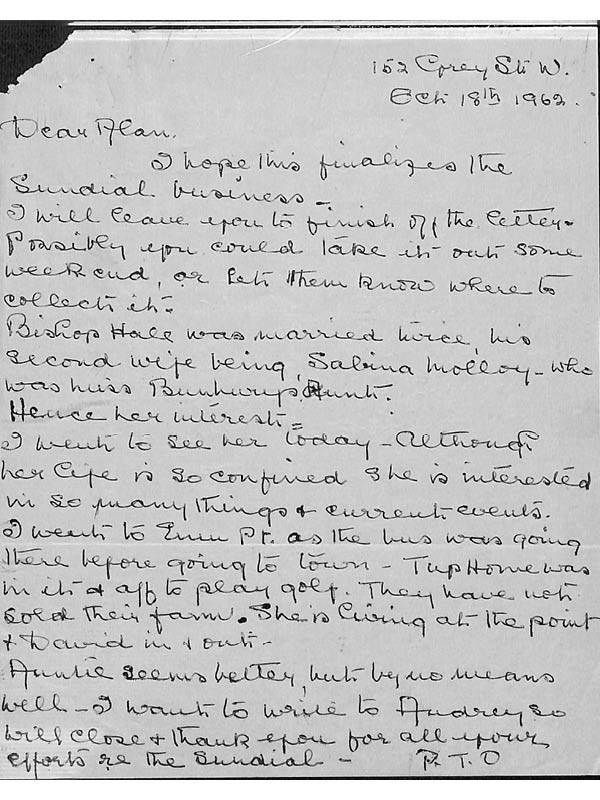 152 Grey St. W.
Oct. 18th 1962.
Dear Alan,
I hope this finalizes the
Sundial business -
I will leave you to finish off the letter.
Possibly you could take it out some
week end, or let them know where to
collect it.
Bishop Hale was married twice, his
second wife being, Sabina Molloy - who
was Miss Bunbury's Aunt.
Hence her interest =
I went to see her today - Although
her life is so confined she is interested
in so many things & current events.
I went to Emu Pt. as the bus was going
there before going to town - Tup Home was
in it & off to play golf. They have not
sold their farm. She is living at the point
& David in & out -
Auntie seems better, but by no means
well - I want to write to Audrey so
will close & thank you for all your
efforts re the Sundial - P.T.O